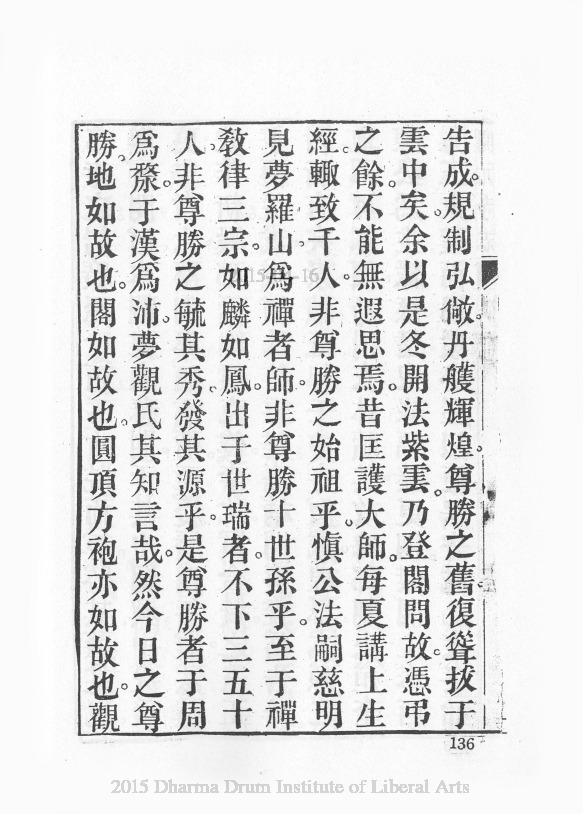 告成。規制弘敞。丹艧輝煌。尊勝之舊。復聳拔于
雲中矣。余以是冬開法紫雲。乃登閣問故。憑弔
之餘。不能無遐思焉。昔匡護大師。每夏講上生
經。輙致千人。非尊勝之始祖乎。愼公法嗣慈明
見夢羅山。爲禪者師。非尊勝十世孫乎。至于禪
敎律三宗。如麟如鳳。出于世瑞者。不下三五十
人。非尊勝之毓其秀。發其源乎。是尊勝者。于周
爲漦。于漢爲沛。夢觀氏其知言哉。然今日之尊
勝。地如故也。閣如故也。圓頂方袍亦如故也。觀
136
2015 Dharma Drum Institute of Liberal Arts